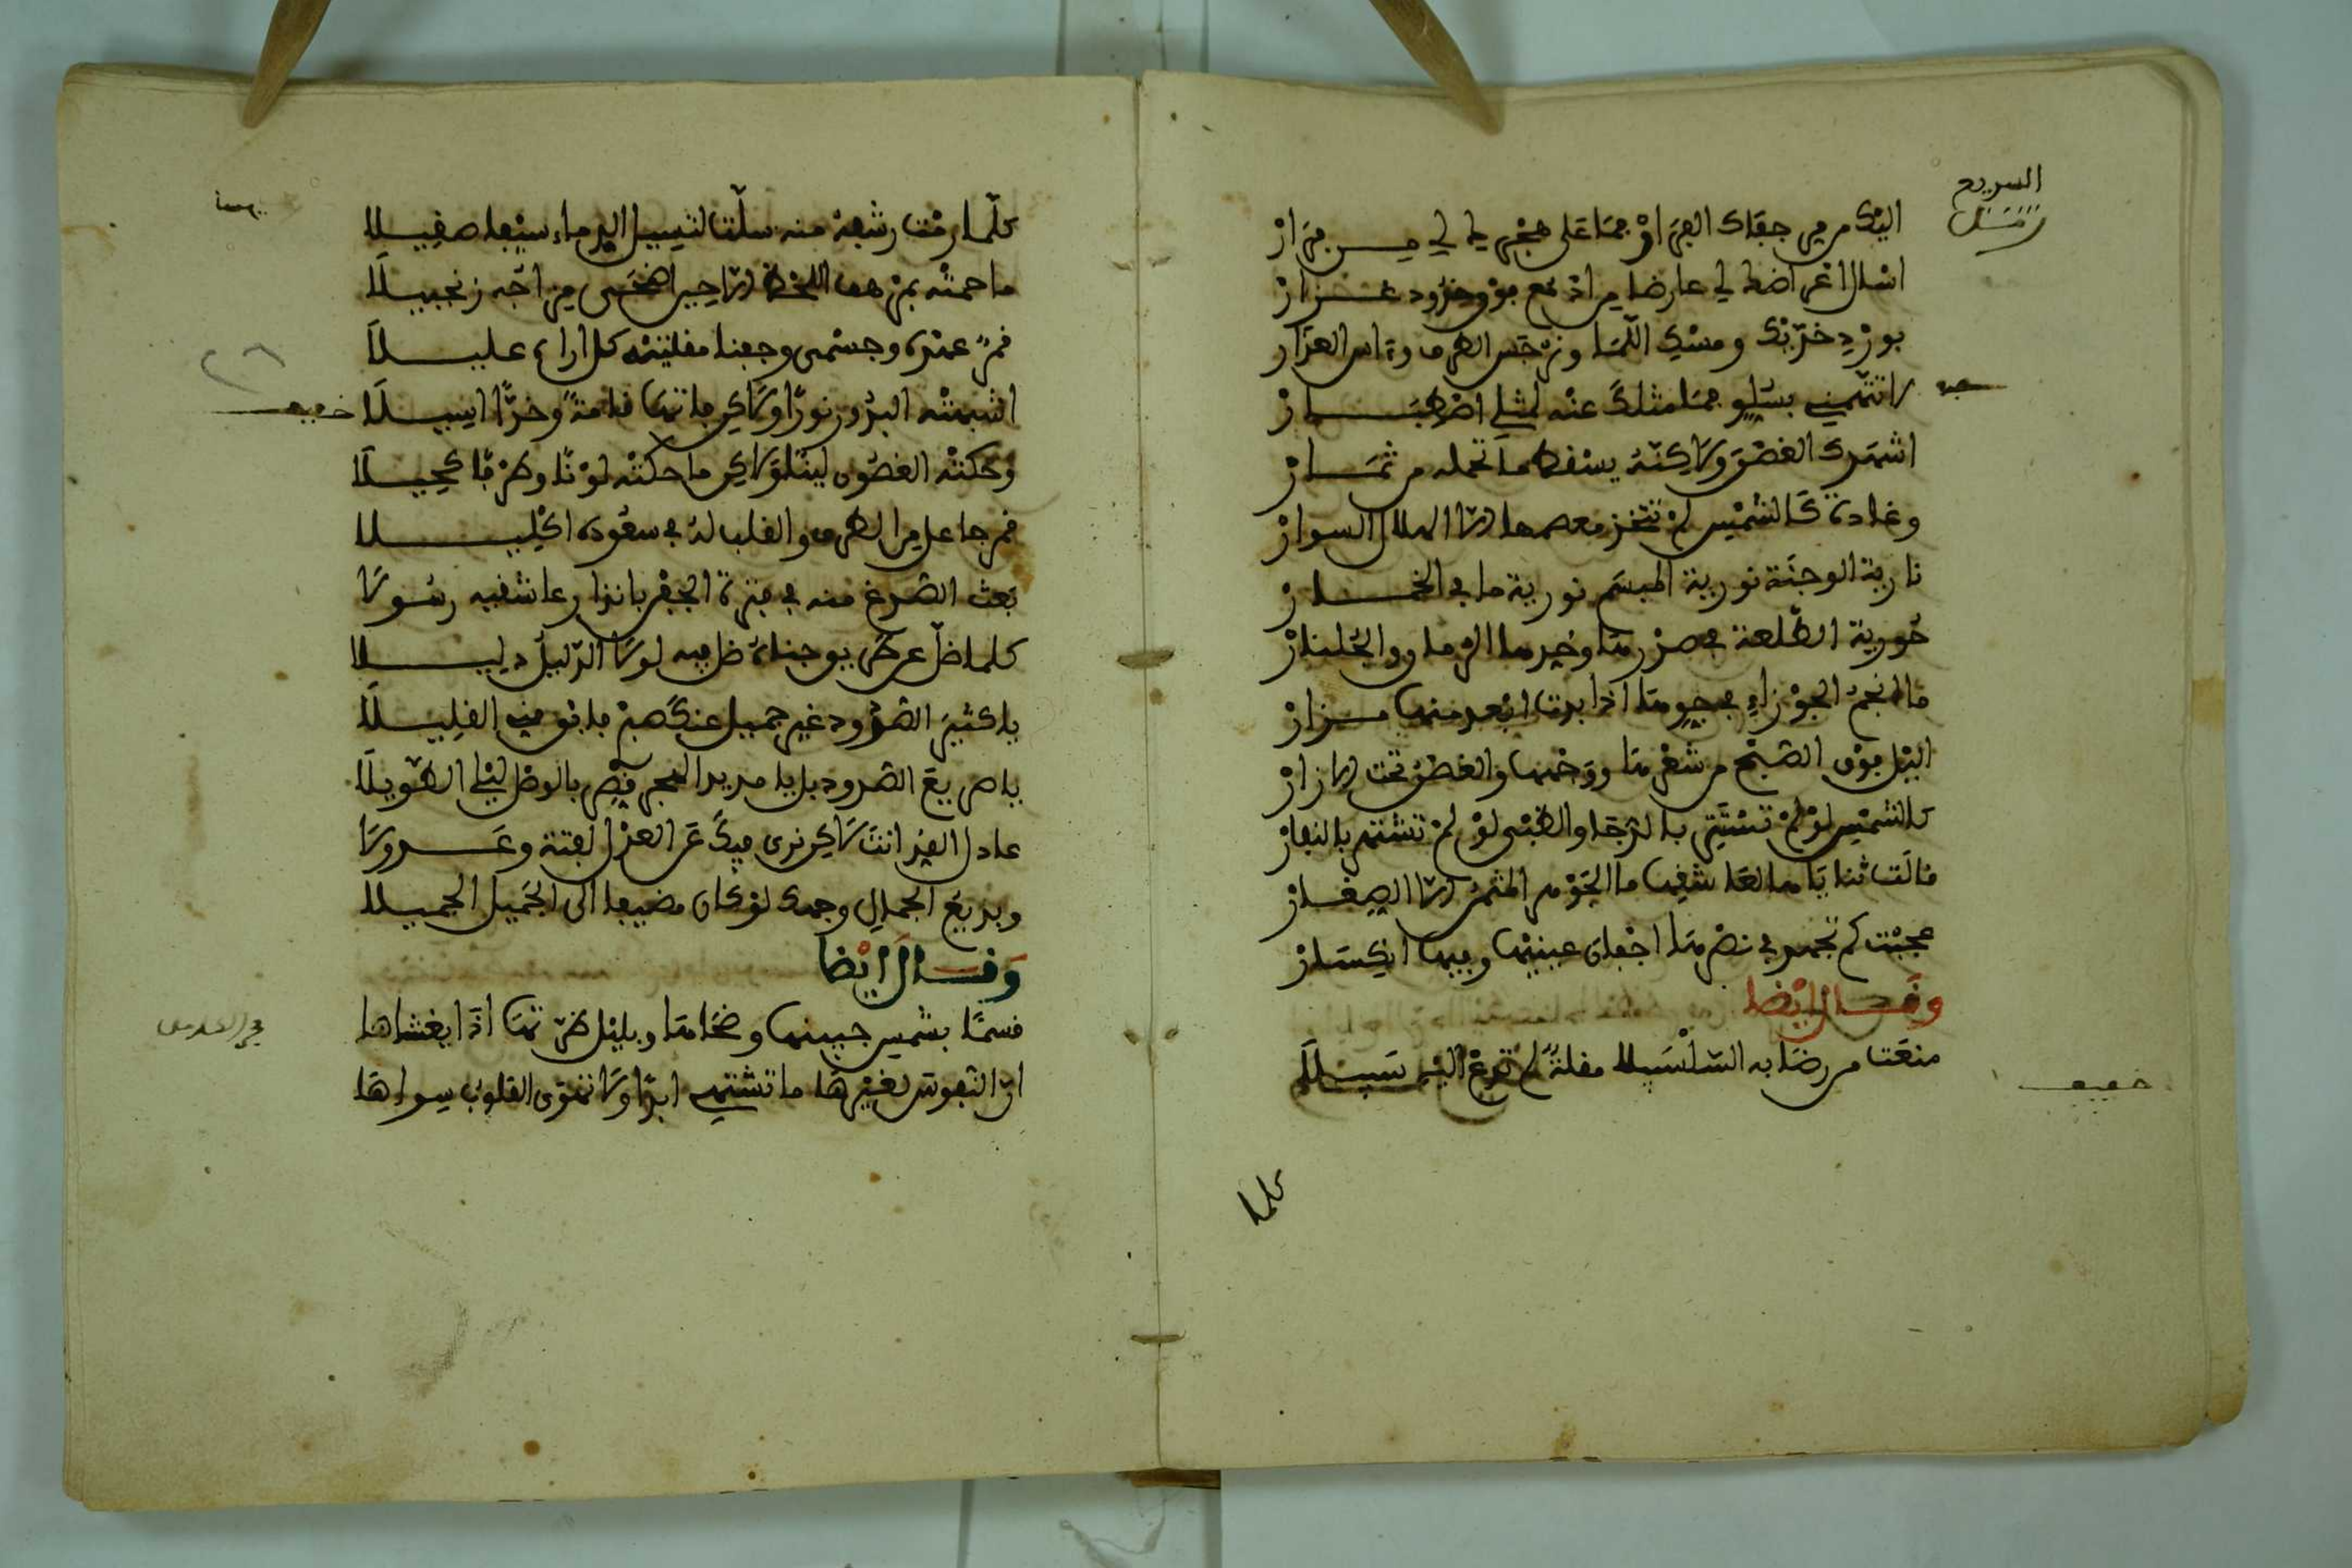 السريع
اليك من جفاك الفرار فما على هجرك لي من فرار
اسال اعراضك لي عارضا من ادمع فوق خدود غزار
بورد خديك ومسك اللما ونرجس الطرف وءاس العذار
لا تتهمني بسلو فما مثلك عنه لمثلي اصطبار
اشبهك الغصن ولاكنه يسقط ما تحمله من ثمار
وغادة كالشمس لم تتخذ معصمها الا الهلال السوار
نارية الوجنة نورية المبسم نورية ما في الخمار
حورية الطلعة في صدرها وخدها الرمان والجلنار
ما انجم الجوزاء في جيدها اذا بدت ابعد منها مزار
اليل فوق الصبح من شعرها ووجهها والغصن تحت الازار
كالشمس لو لم تستتر بالدجا والظبي لو لم تشتهر بالنفار
قالت ثناياها لعاشقها ما الجوهر المثمن الا الصغار
عجبت كم تجهد في نصرها اجفان عينيها وفيها انكسار
وقال ايضا
منعت من رضابه السلسبيلا مقلة لم تدع اليه سبيلا
خفيف
كلما
كلما رمت رشفة منه سلت لتسيل الدماء سيفا صقيلا
ما حمته بمرهف اللحظ الا حين اضحى مزاجه زنجبيلا
قمر عهده وجسمي وجفنا مقلتيه كل اراه عليلا
اشبهته البدور نورا ولاكن فاتها قامة وخدا اسيلا
خفيف
وحكته الغصون لينا ولاكن ما حكته لونا وطرفا كحيلا
قمر جاعل من الطرف والقلب له في سعوده اكليلا
بعث الصدغ منه في فترة الجفن بانذار عاشقيه رسولا
كلما ضل عن طريق جناه ظل فيه لولا الدليل دليلا
يا كثير الصدود غير جميل عنك صبر فابق مني القليلا
يا مريع الصدود بل يا مديد الهجر قصر بالوصل ليلي الطويلا
عادل القد انت لاكن نرى فيك عن العدل لفتة وعدولا
وبديع الجمال وجهك لو كان مضيفا الى الجميل الجميلا
وقال ايضا
قسما بشمس جبينها وضحاها وبليل طرتها اذا يغشاها
ان النفوس لغيرها ما تشتهي ابدا ولا تهوى القلوب سواها